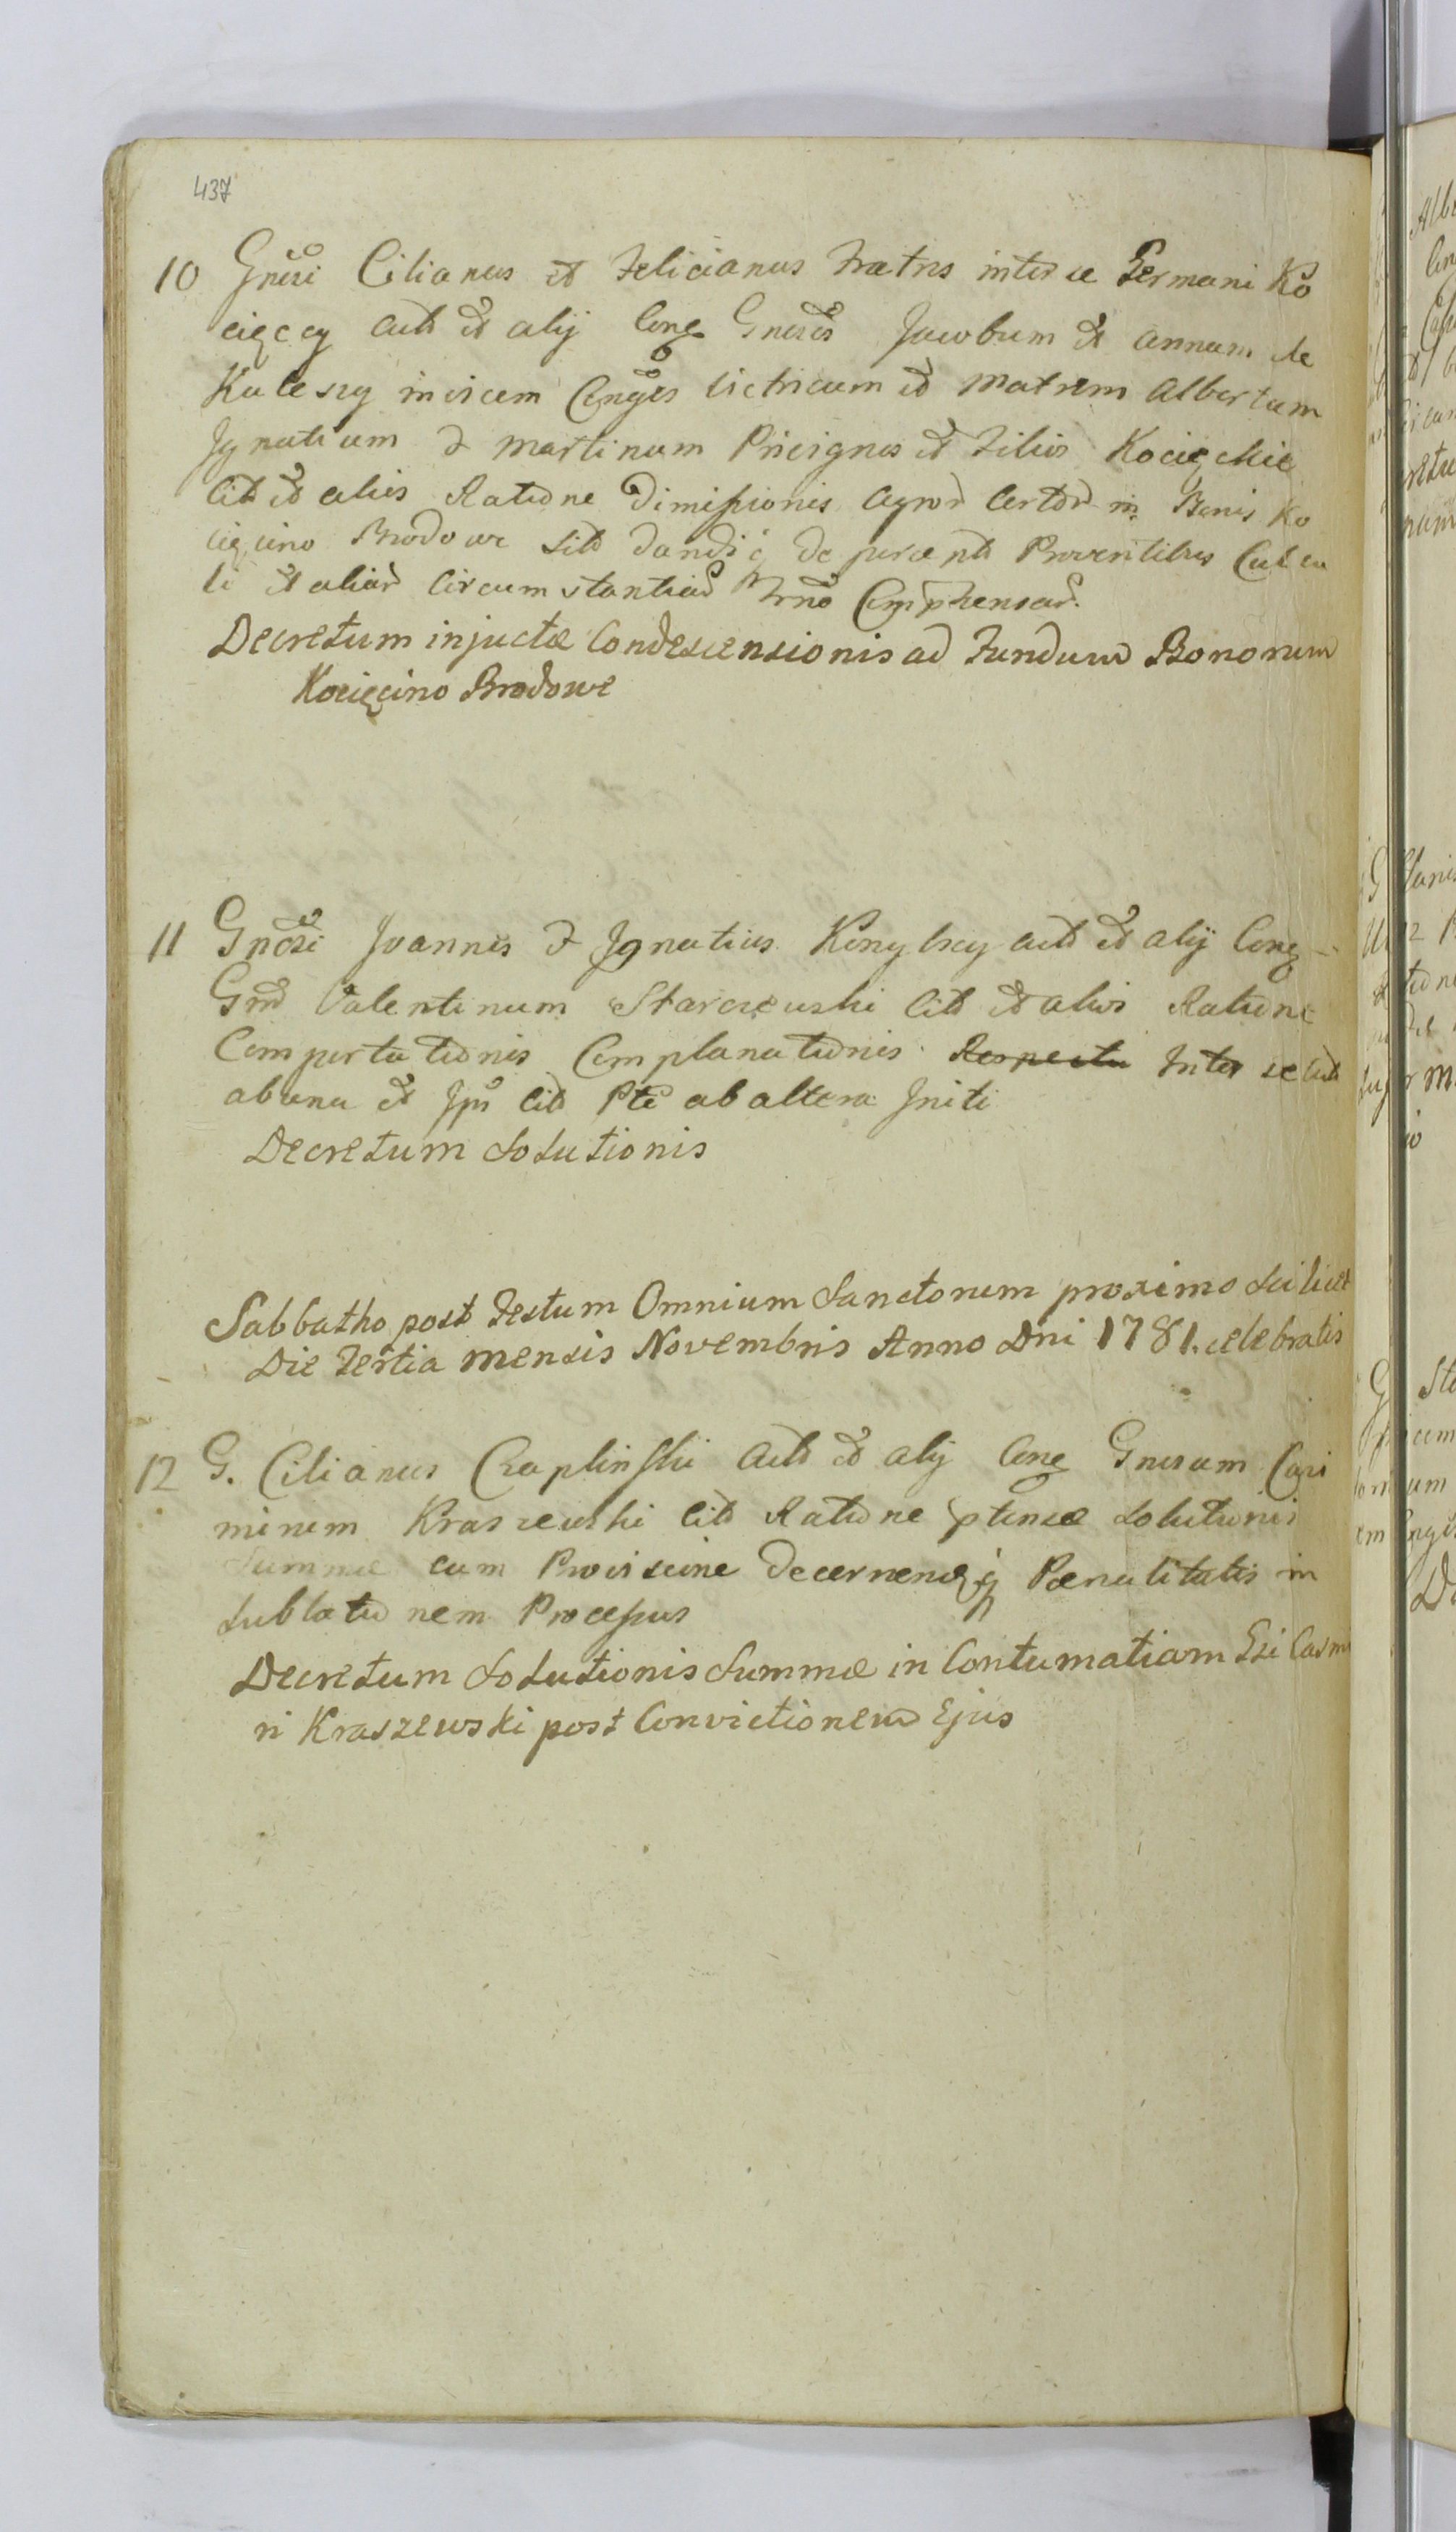 437
10 Gnrsi Cilianus et Felicianus Fratres inter se Germani Ko
cięccy Actt et alij Cong Gnrsos Jacobum et Annam de
Kuleszy invicem Conges Victricum et Matrem Albertum
Ignatium et Martinum Privignos et Filios Kocięckie
Citt et alios Ratione Dimissionis Agror Certor in Bonis Ko
cięcino Brodowe Sitt Dandiq de percept Proventibus Calcu
li et aliar Circumstantiar Trno Comphensar.
Decretum injuctæ Condescensionis ad Fundum Bonorum
Kocięcino Brodowe
11 Gnrsi Joannes et Ignatius Konylscy Actt et alij Cong
Gnr Valentinum Starczewski Citt et alios Ratione
Comportationis Complanationis Respectu Inter se Actt
ab una et Citt Pte ab altera Initi
Decretum Solutionis
Sabbatho post Festum Omnium Sanctorum proximo Scilicet
Die Tertia Mensis Novembris Anno Dni 1781. celebratis
12 G. Cilianus Czaplinski Actt et alij Cong Gnrsum Casi
mirum Kraszewski Citt Ratione ptensæ Solutionis
Summæ cum Provisione Decernendæq Pœnalitatis in
Sublationem Processus
Decretum Solutionis Summæ in Contumatiam Gsi Casmi
ri Kraszewski post Convictionem Ejus